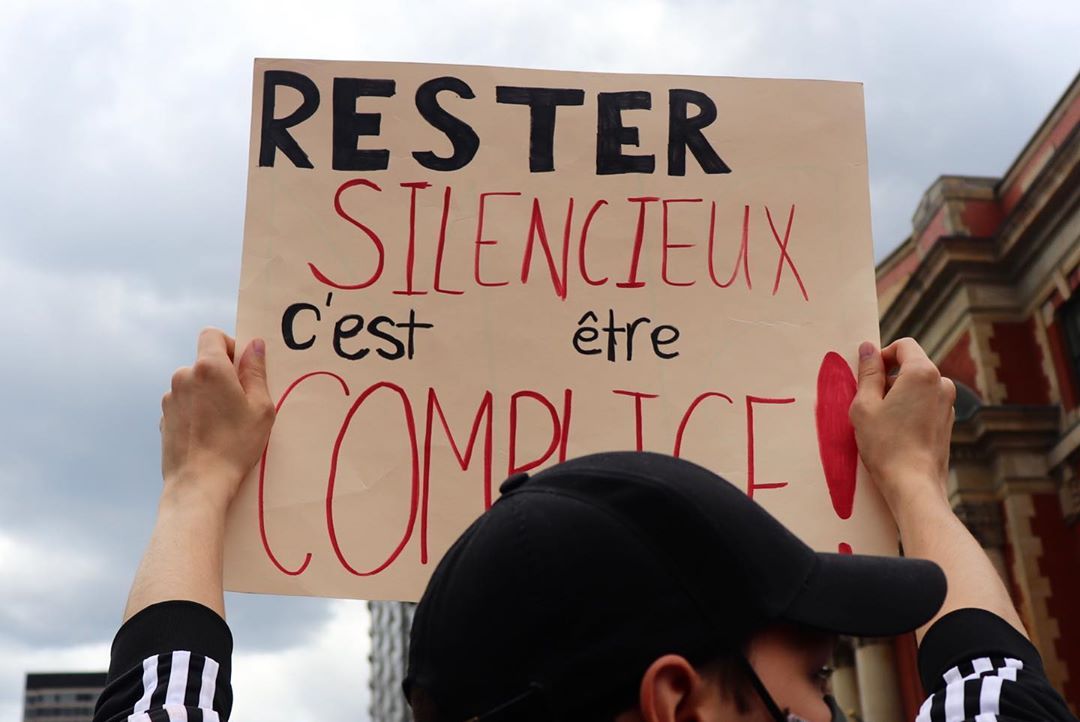 RESTER
SILENCIEUX
c'est être
COMPLICE!